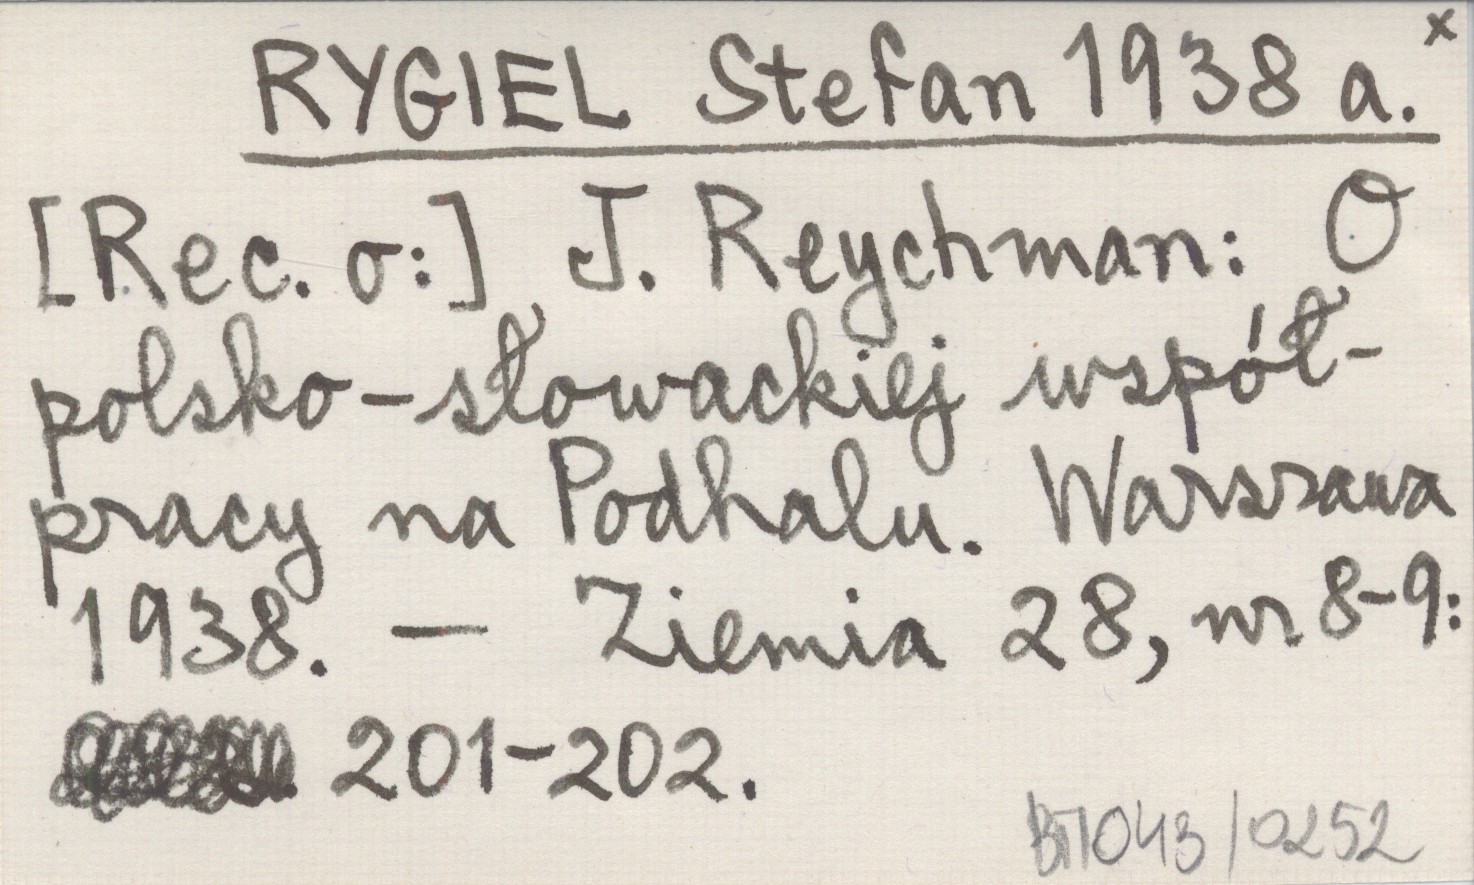 RYGIEL Stefan 1938 a. x
[Rec. o:] J. Reychman: O
polsko-słowackiej współ-
pracy na Podhalu. Warszawa
1938. — Ziemia 28, nr 8-9:
201-202.
043/0252